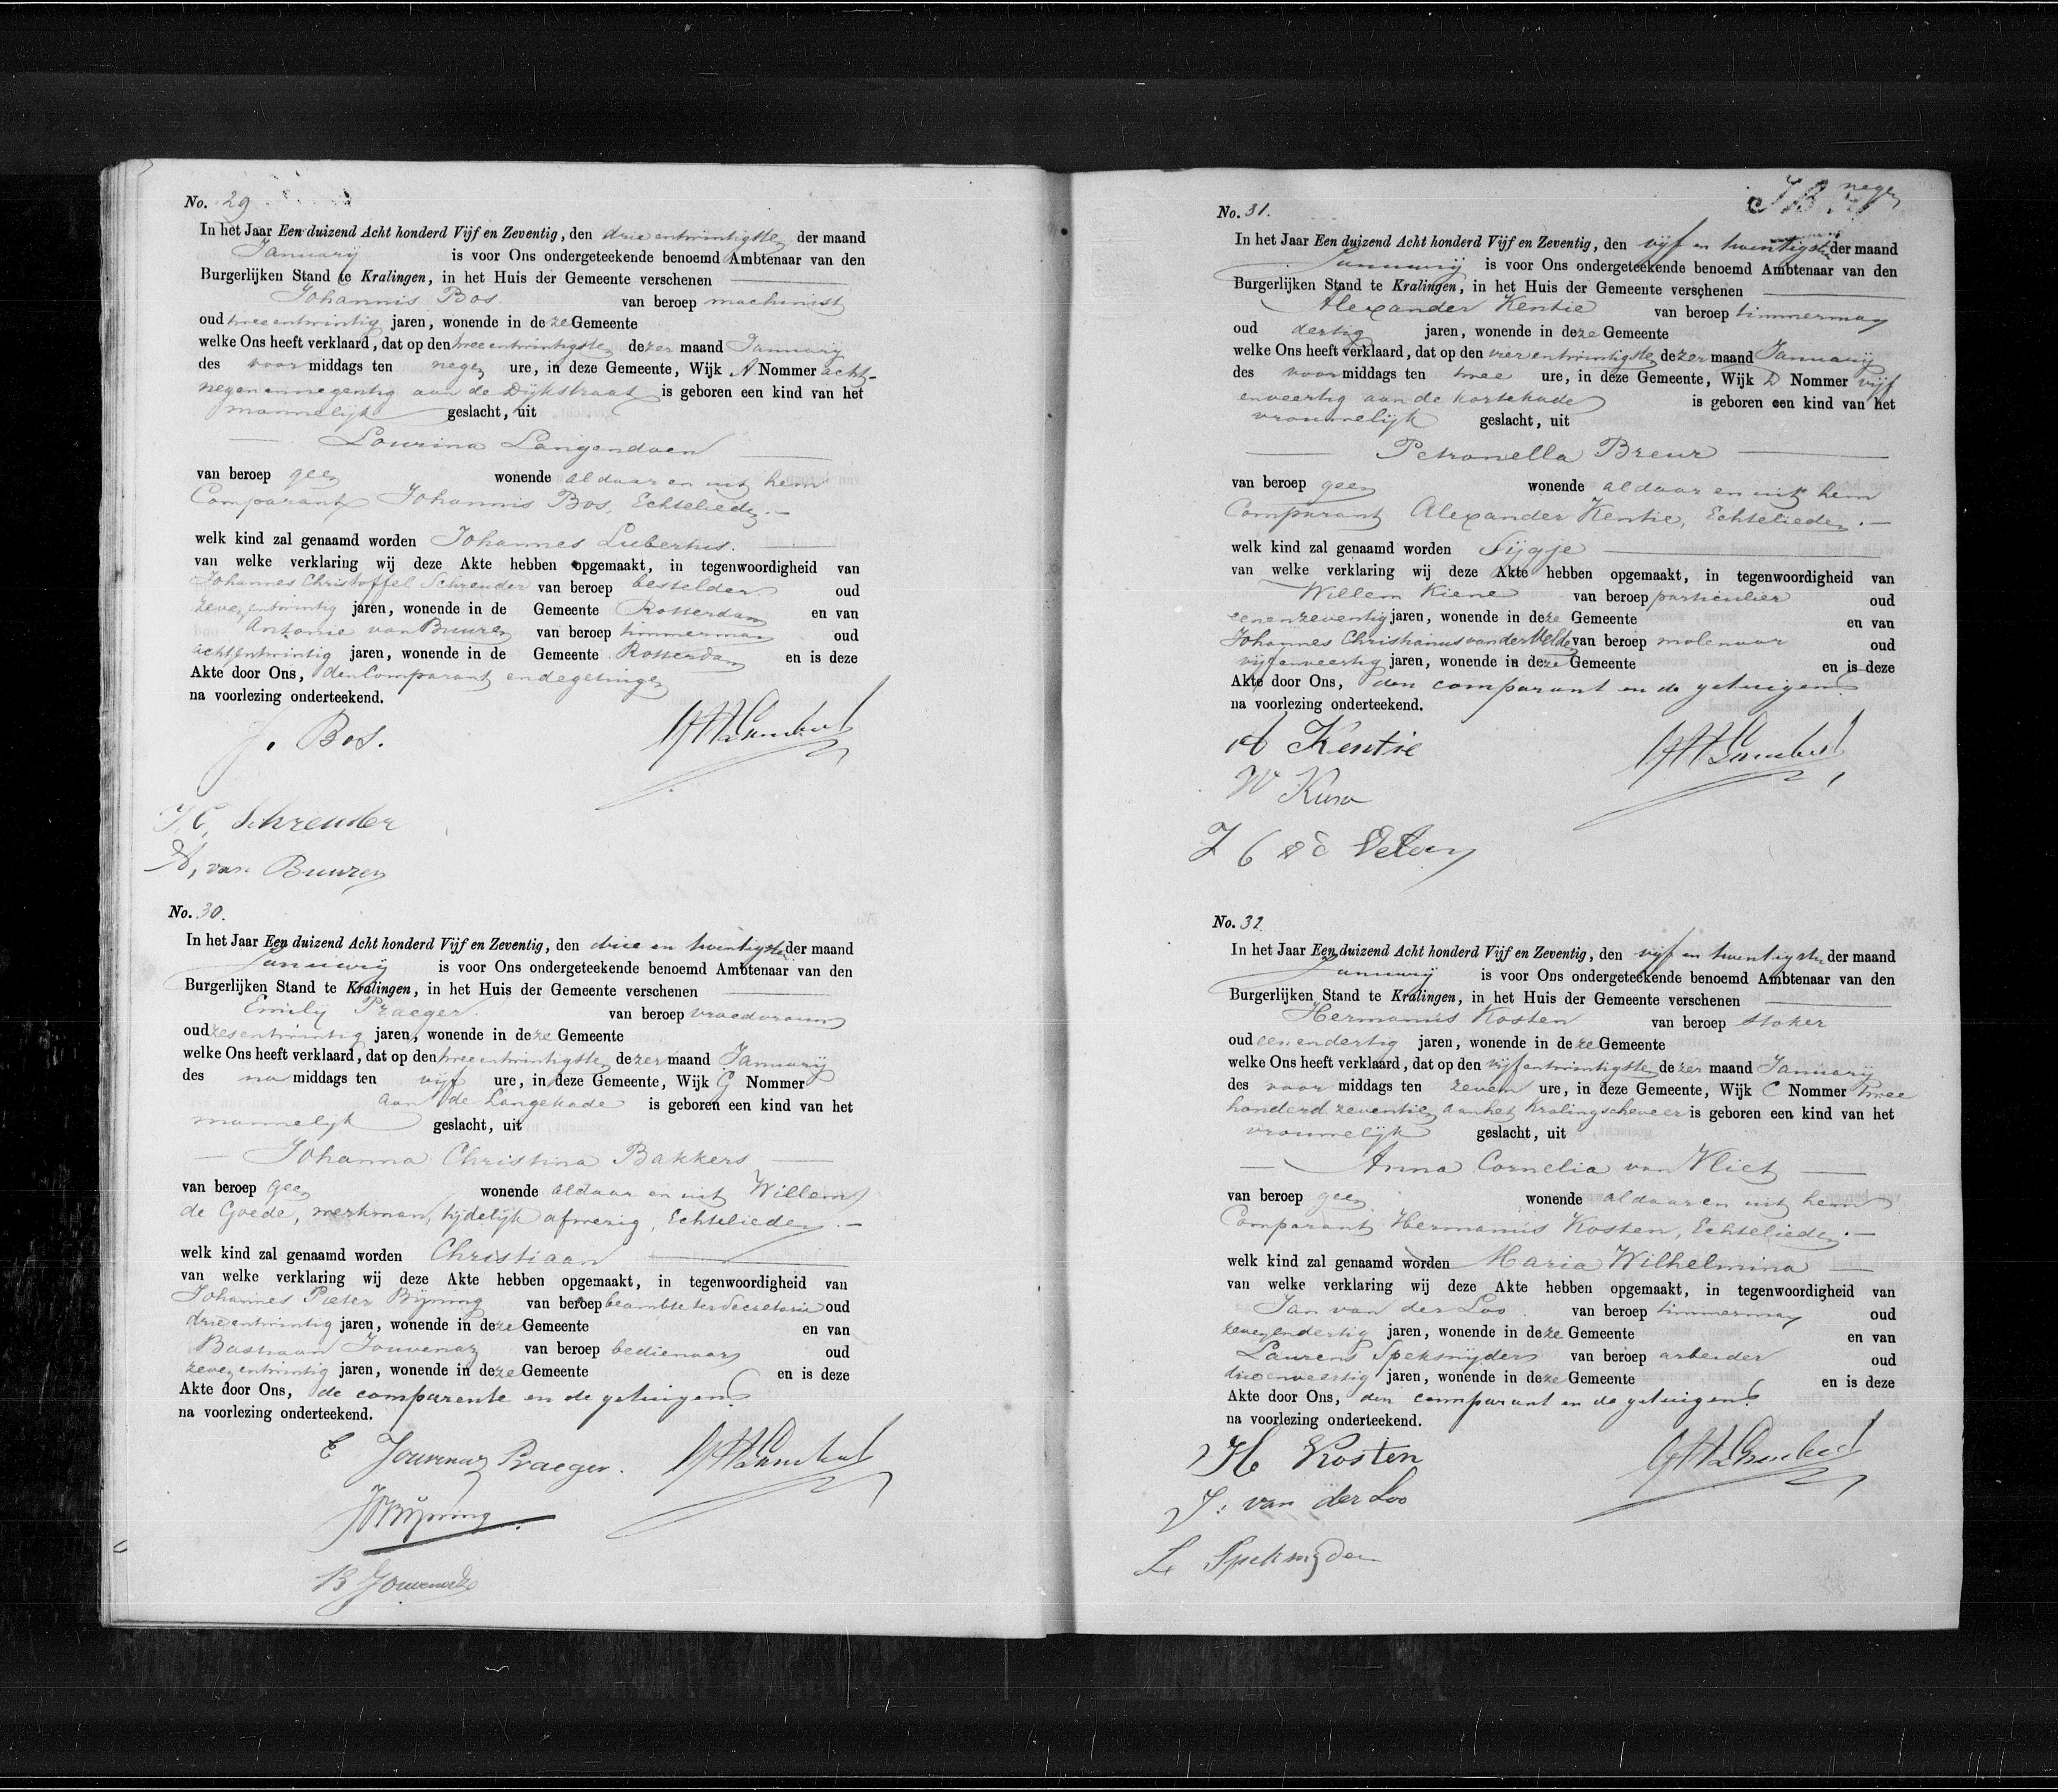 No. 29
In het Jaar Een duizend Acht honderd Vijf en Zeventig, den drie entwintigsten der maand
Januarij is voor Ons ondergeteekende benoemd Ambtenaar van den
Burgerlijken Stand te Kralingen, in het Huis der Gemeente verschenen
Johannis Bos van beroep machinist
oud twee entwintig jaren, wonende in deze Gemeente
welke Ons heeft verklaard, dat op den twee entwintigsten dezer maand Januarij
des voormiddags ten negen ure, in deze Gemeente, Wijk A Nommer acht-
negenennegentig aan de Dijkstraat is geboren een kind van het
mannelijk geslacht, uit
Lourina Langendoen
van beroep geen wonende aldaar en uit hem
Comparant Johannis Bos, Echtelieden.
welk kind zal genaamd worden Johannes Lubertus.
van welke verklaring wij deze Akte hebben opgemaakt, in tegenwoordigheid van
Johannes Christoffel Schreuder van beroep besteller oud
zeven entwintig jaren, wonende in de Gemeente Rotterdam en van
Antonie van Buuren van beroep timmerman oud
acht entwintig jaren, wonende in de Gemeente Rotterdam en is deze
Akte door Ons, den Comparant en de getuigen
na voorlezing onderteekend.
J. Bos.
J C. Schreuder
A, van Buuren
No. 30.
In het Jaar Een duizend Acht honderd Vijf en Zeventig, den drie en twintigsten der maand
Januarij is voor Ons ondergeteekende benoemd Ambtenaar van den
Burgerlijken Stand te Kralingen, in het Huis der Gemeente verschenen
Emily Praeger. van beroep vroedvrouw
oud zesentwintig jaren, wonende in deze Gemeente
welke Ons heeft verklaard, dat op den twee entwintigsten dezer maand Januarij
des na middags ten vijf ure, in deze Gemeente, Wijk G Nommer
aan de Langekade is geboren een kind van het
mannelijk geslacht, uit
Johanna Christina Bakkers
van beroep geen wonende aldaar en uit Willem
de Goede, werkman, tijdelijk afwezig, Echtelieden.
welk kind zal genaamd worden Christiaan
van welke verklaring wij deze Akte hebben opgemaakt, in tegenwoordigheid van
Johannes Pieter Bijning van beroep beambte ter Secretarie oud
drie entwintig jaren, wonende in deze Gemeente en van
Bastiaan Jouvenaz van beroep bedienaar oud
zeven entwintig jaren, wonende in deze Gemeente en is deze
Akte door Ons, de comparente en de getuigen
na voorlezing onderteekend.
E Jouvenaz Praeger.
JPBijning
B Jouvenaz
No. 31.
In het Jaar Een duizend Acht honderd Vijf en Zeventig, den vijf en twintigsten der maand
Januarij is voor Ons ondergeteekende benoemd Ambtenaar van den
Burgerlijken Stand te Kralingen, in het Huis der Gemeente verschenen
Alexander Kentie van beroep timmerman
oud dertig jaren, wonende in deze Gemeente
welke Ons heeft verklaard, dat op den vier entwintigsten dezer maand Januarij
des voormiddags ten twee ure, in deze Gemeente, Wijk D Nommer vijf
enveertig aan de Kortekade is geboren een kind van het
vrouwelijk geslacht, uit
Petronella Breur
van beroep geen wonende aldaar en uit hem
Comparant Alexander Kentie, Echtelieden.
welk kind zal genaamd worden Sijgje
van welke verklaring wij deze Akte hebben opgemaakt, in tegenwoordigheid van
Willem Kiene van beroep particulier oud
eenenzeventig jaren, wonende in deze Gemeente en van
Johannes Christianus van der Velden van beroep molenaar oud
vijfenveertig jaren, wonende in deze Gemeente en is deze
Akte door Ons, den comparant en de getuigen
na voorlezing onderteekend.
A Kentie
No. 32.
In het Jaar Een duizend Acht honderd Vijf en Zeventig, den vijf en twintigsten der maand
Januarij is voor Ons ondergeteekende benoemd Ambtenaar van den
Burgerlijken Stand te Kralingen, in het Huis der Gemeente verschenen
Hermanus Kosten van beroep stoker
oud een endertig jaren, wonende in deze Gemeente
welke Ons heeft verklaard, dat op den vijf entwintigsten dezer maand Januarij
des voor middags ten zeven ure, in deze Gemeente, Wijk C Nommer twee
honderd zeventien aan het Kralingscheveer is geboren een kind van het
vrouwelijk geslacht, uit
Anna Cornelia van Vliet
van beroep geen wonende aldaar en uit hem
Comparant Hermanus Kosten, Echtelieden.
welk kind zal genaamd worden Maria Wilhelmina
van welke verklaring wij deze Akte hebben opgemaakt, in tegenwoordigheid van
Jan van der Loo van beroep timmerman oud
zevenendertig jaren, wonende in deze Gemeente en van
Laurens Speksnijder van beroep arbeider oud
drieenveertig jaren, wonende in deze Gemeente en is deze
Akte door Ons, den comparant en de getuigen
na voorlezing onderteekend.
H Kosten
J: van der Loo
L Speksnijder